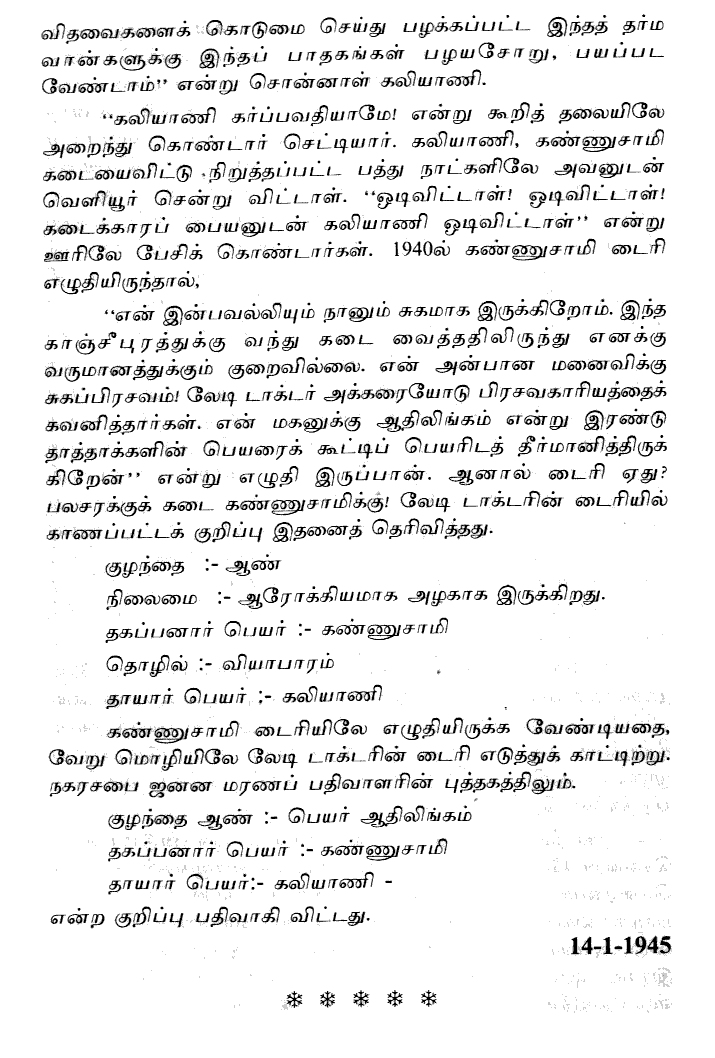 விதவைகளைக் கொடுமை செய்து பழக்கப்பட்ட இந்தத் தர்ம
வான்களுக்கு இந்தப் பாதகங்கள் பழயசோறு, பயப்பட
வேண்டாம்'' என்று சொன்னாள் கலியாணி.
''கலியாணி கர்ப்பவதியாமே! என்று கூறித் தலையிலே
அறைந்து கொண்டார் செட்டியார். கலியாணி, கண்ணுசாமி
கடையைவிட்டு நிறுத்தப்பட்ட பத்து நாட்களிலே அவனுடன்
வெளியூர் சென்று விட்டாள். ''ஒடிவிட்டாள்! ஒடிவிட்டாள்!
கடைக்காரப் பையனுடன் கலியாணி ஒடிவிட்டாள்'' என்று
ஊரிலே பேசிக் கொண்டார்கள். 1940ல் கண்ணுசாமி டைரி
எழுதியிருந்தால்,
''என் இன்பவல்லியும் நானும் சுகமாக இருக்கிறோம். இந்த
காஞ்சீபுரத்துக்கு வந்து கடை வைத்ததிலிருந்து எனக்கு
வருமானத்துக்கும் குறைவில்லை. என் அன்பான மனைவிக்கு
சுகப்பிரசவம்! லேடி டாக்டர் அக்கரையோடு பிரசவகாரியத்தைக்
கவனித்தார்கள். என் மகனுக்கு ஆதிலிங்கம் என்று இரண்டு
தாத்தாக்களின் பெயரைக் கூட்டிப் பெயரிடத் தீர்மானித்திருக்
கிறேன்'' என்று எழுதி இருப்பான். ஆனால் டைரி ஏது?
பலசரக்குக் கடை கண்ணுசாமிக்கு! லேடி டாக்டரின் டைரியில்
காணப்பட்டக் குறிப்பு இதனைத் தெரிவித்தது.
குழந்தை :- ஆண்
நிலைமை :- ஆரோக்கியமாக அழகாக இருக்கிறது.
தகப்பனார் பெயர் :- கண்ணுசாமி
தொழில் :- வியாபாரம்
தாயார் பெயர் :- கலியாணி
கண்ணுசாமி டைரியிலே எழுதியிருக்க வேண்டியதை,
வேறு மொழியிலே லேடி டாக்டரின் டைரி எடுத்துக் காட்டிற்று.
நகரசபை ஜனன மரணப் பதிவாளரின் புத்தகத்திலும்.
குழந்தை ஆண் :- பெயர் ஆதிலிங்கம்
தகப்பனார் பெயர் :- கண்ணுசாமி
தாயார் பெயர்:- கலியாணி -
என்ற குறிப்பு பதிவாகி விட்டது.
14-1-1945